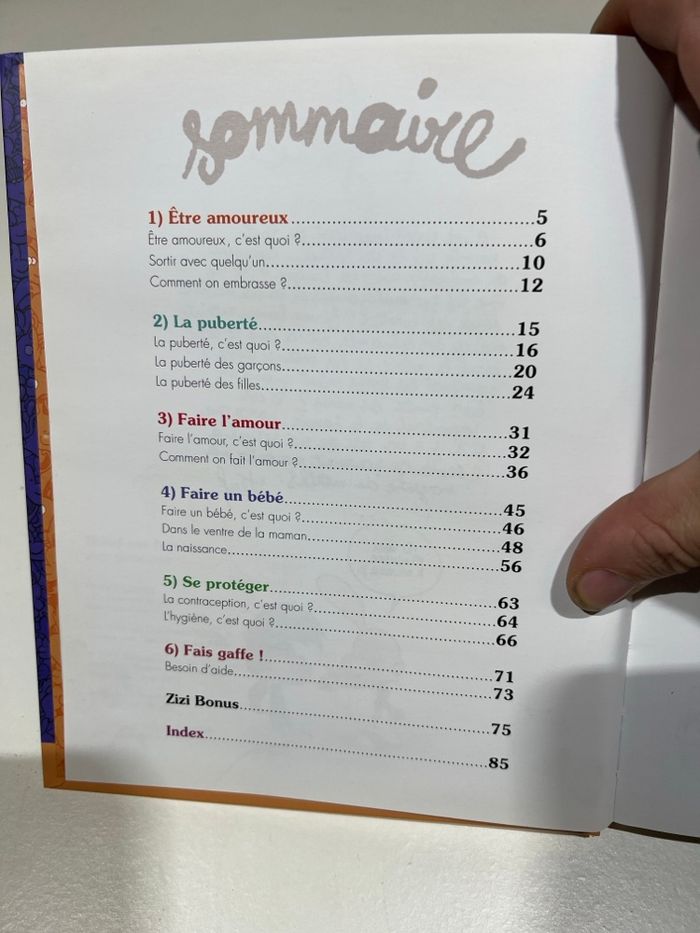 sommaire
1) Être amoureux.......5
Être amoureux, c'est quoi ?.......6
Sortir avec quelqu'un.......10
Comment on embrasse ?.......12
2) La puberté.......15
La puberté, c'est quoi ?.......16
La puberté des garçons.......20
La puberté des filles.......24
3) Faire l'amour.......31
Faire l'amour, c'est quoi ?.......32
Comment on fait l'amour ?.......36
4) Faire un bébé.......45
Faire un bébé, c'est quoi ?.......46
Dans le ventre de la maman.......48
La naissance.......56
5) Se protéger.......63
La contraception, c'est quoi ?.......64
L'hygiène, c'est quoi ?.......66
6) Fais gaffe !.......71
Besoin d'aide.......73
Zizi Bonus.......75
Index.......85